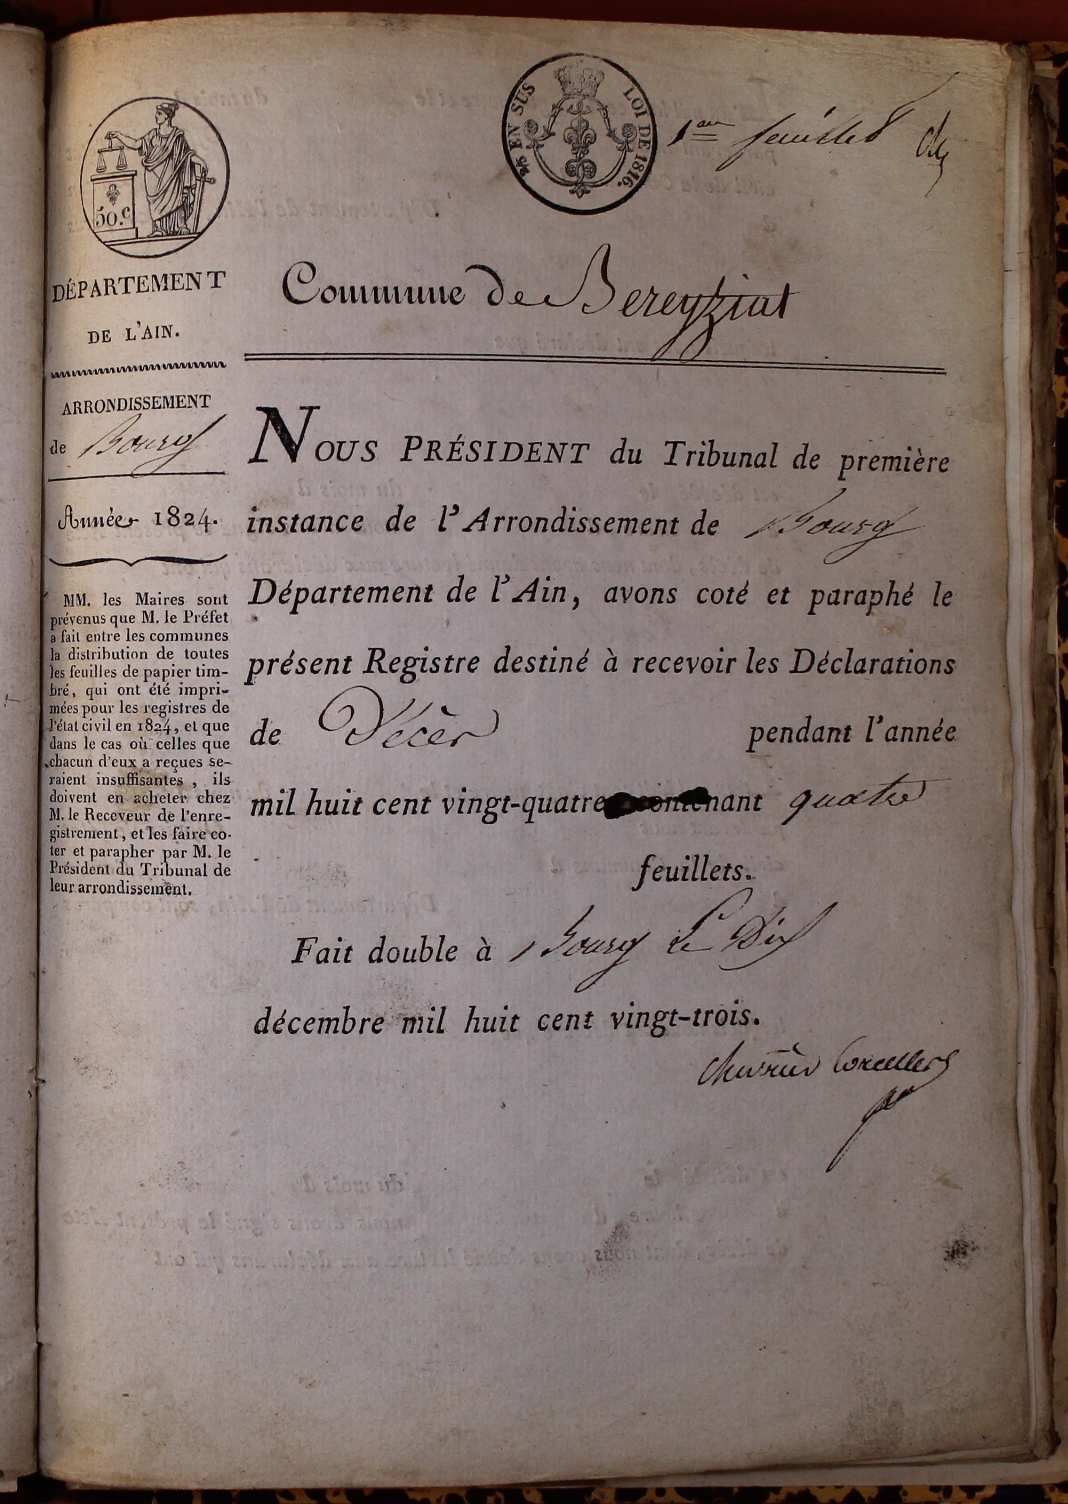 2/5 EN SUS LOI DE 1816.
1er feuillet
50.c
DÉPARTEMENT
DE L'AIN.
Commune de Bereyziat
ARRONDISSEMENT
de Bourg
Année 1824.
MM. les Maires sont
prévenus que M. le Préfet
a fait entre les communes
la distribution de toutes
les feuilles de papier tim-
bré, qui ont été impri-
mées pour les registres de
l'état civil en 1824, et que
dans le cas où celles que
chacun d'eux a reçues se-
raient insuffisantes, ils
doivent en acheter chez
M. le Receveur de l'enre-
gistrement, et les faire co-
ter et parapher par M. le
Président du Tribunal de
leur arrondissement.
NOUS PRÉSIDENT du Tribunal de première
instance de l'Arrondissement de Bourg
Département de l'Ain, avons coté et paraphé le
présent Registre destiné à recevoir les Déclarations
de Décès pendant l'année
mil huit cent vingt-quatre contenant quatre
feuillets.
Fait double à Bourg le Dix
décembre mil huit cent vingt-trois.